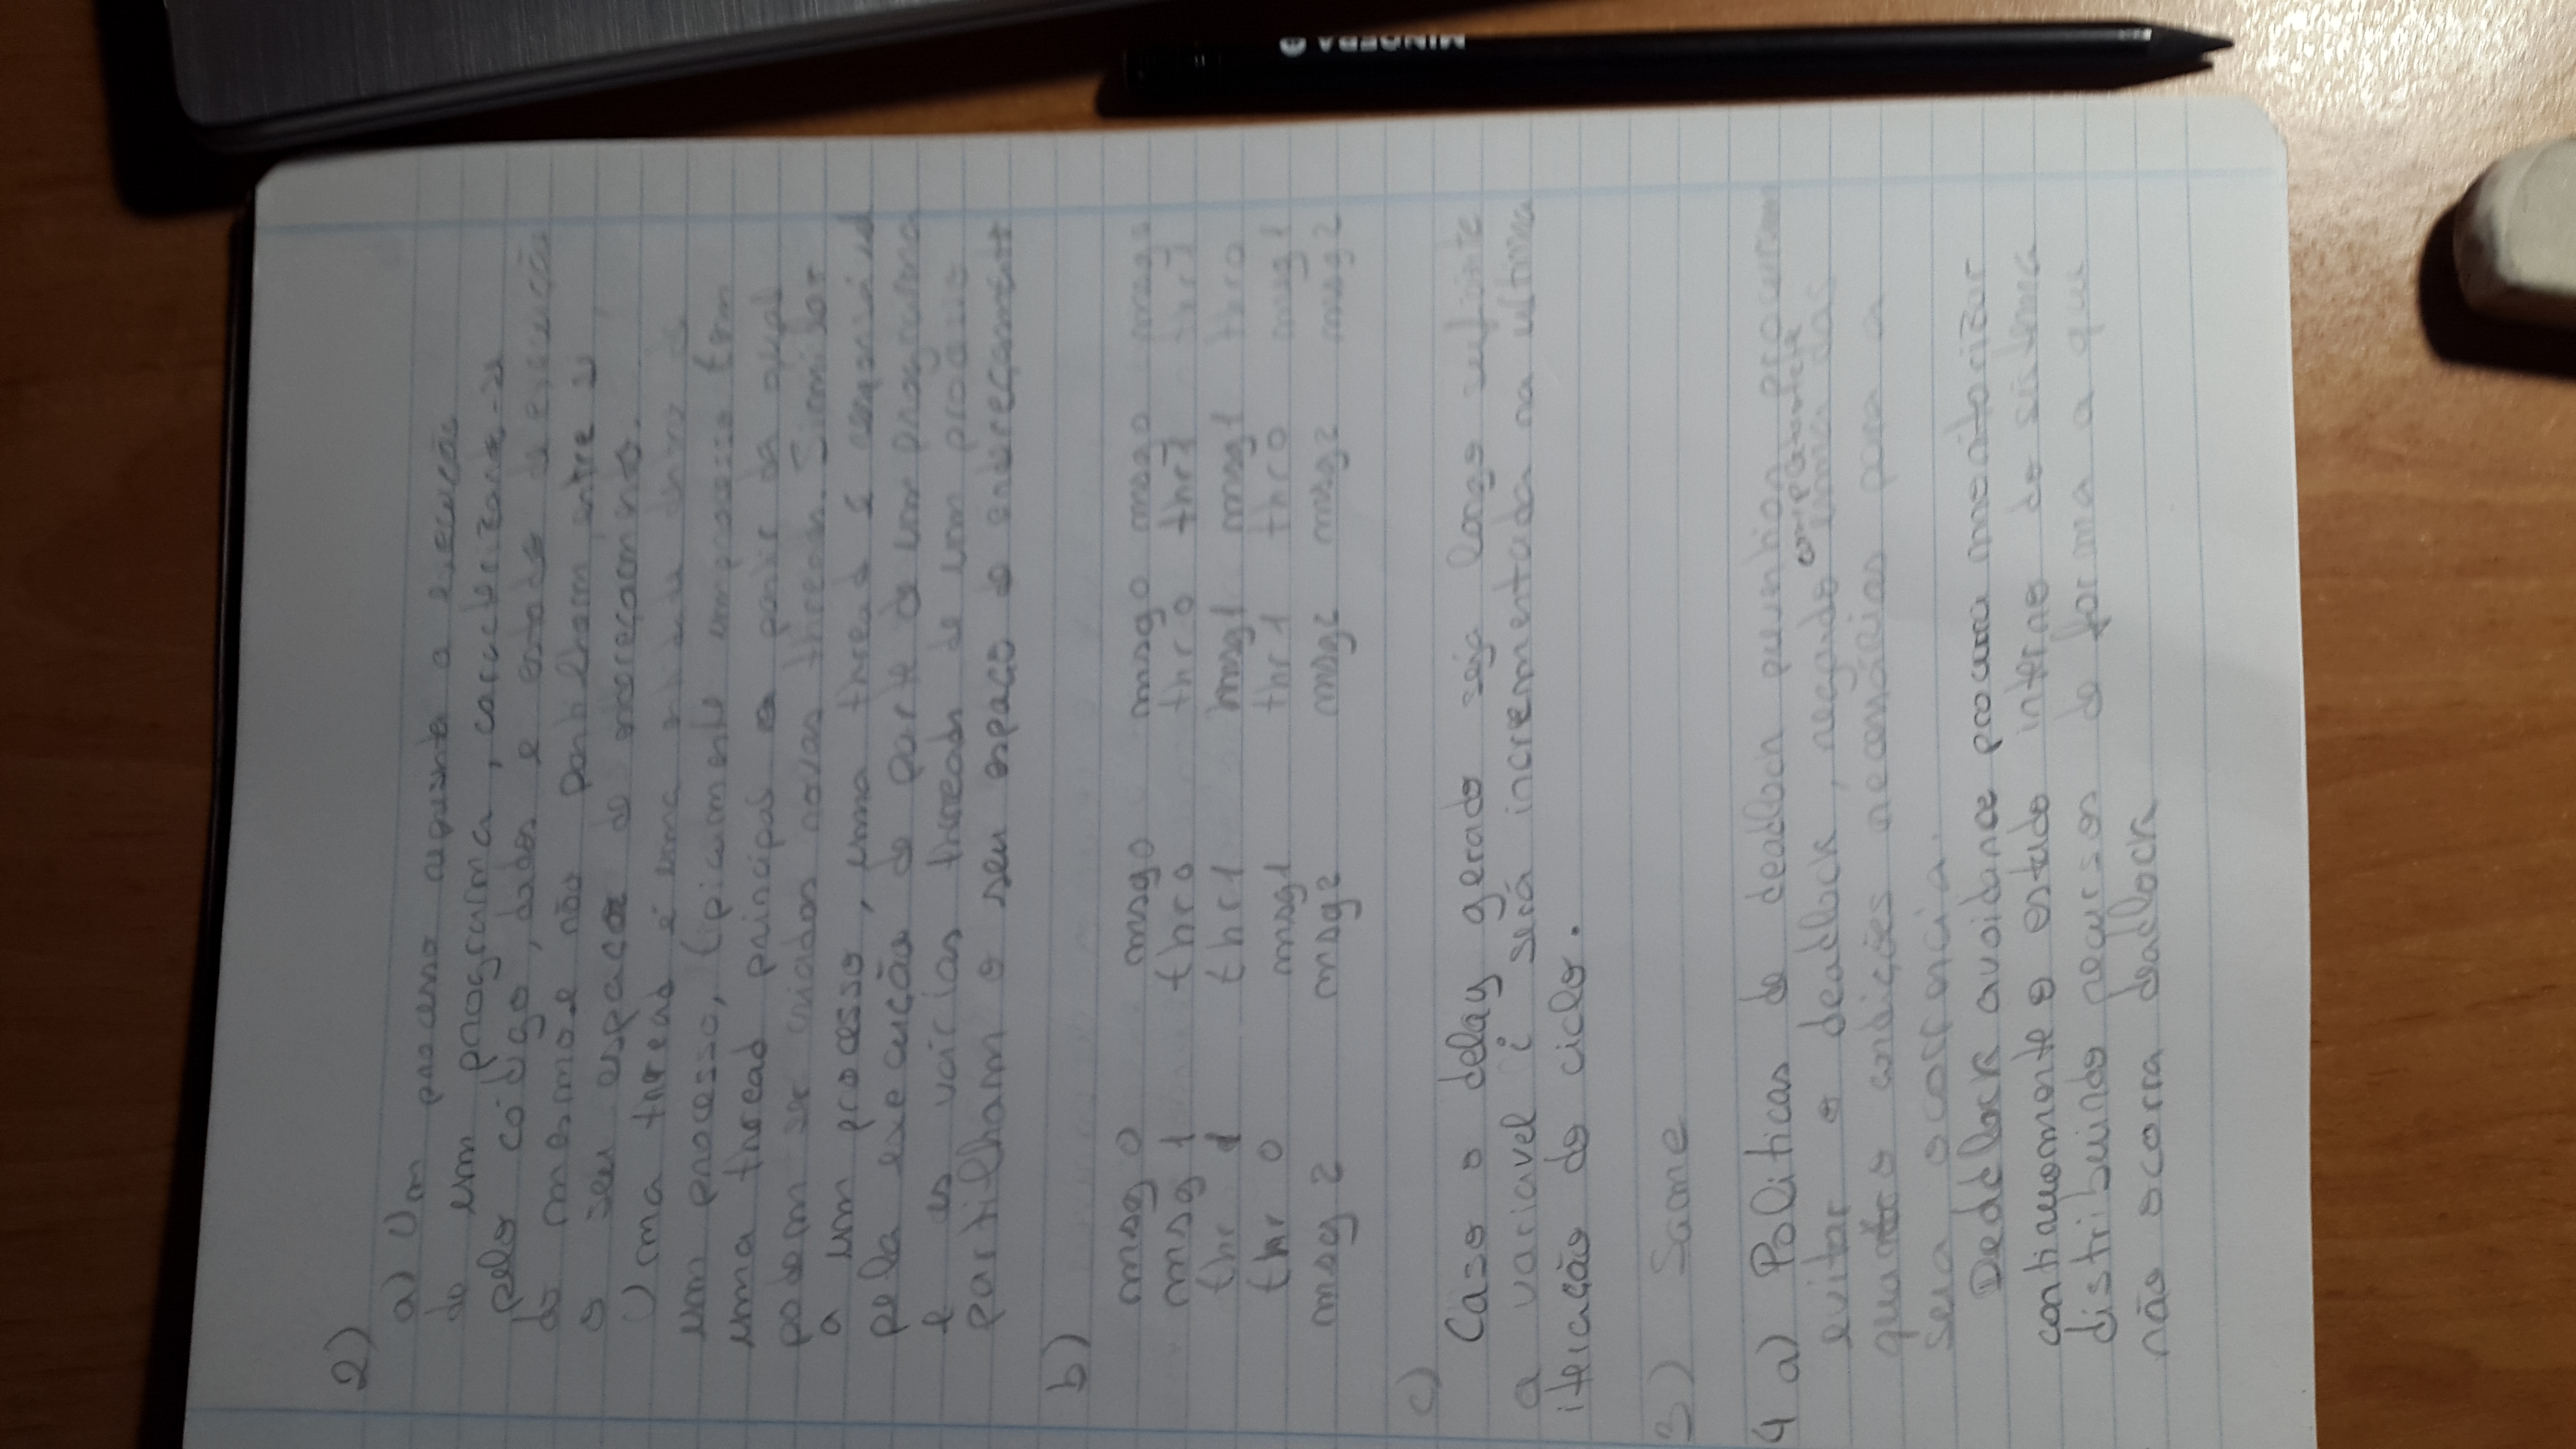 2)
a) Um processo representa a execução
de um programa, caracterizando-se
pelo código, dados e estado de execução
do mesmo e não partilham entre si
o seu espaço de endereçamento.
Uma thread é uma entidade dentro de
um processo, tipicamente um processo tem
uma thread principal a partir da qual
podem ser criadas novas threads. Similar
a um processo, uma thread é responsável
pela execução de parte de um programa
e as várias threads de um processo
partilham o seu espaço de endereçamento
b)
msg 0 msg0 msg0 msg0 msg0
msg 1 thr0 thr0 thr1 thr1
thr 1 thr1 msg1 msg1 thr0
thr 0 msg1 thr1 thr0 msg1
msg 2 msg2 msg2 msg2 msg2
c)
Caso o delay gerado seja longo
a variavel i será incrementada na ultima
iteração do ciclo.
3) Same
4 a) Politicas de deadlock procuram
evitar o deadlock, negando completamente uma das
quatro condições necessárias para a
sua ocorrencia.
Deadlock avoidance procura monitorizar
continuamente o estado interno do sistema
distribuindo recursos de forma a que
não ocorra deadlock
MINGERA